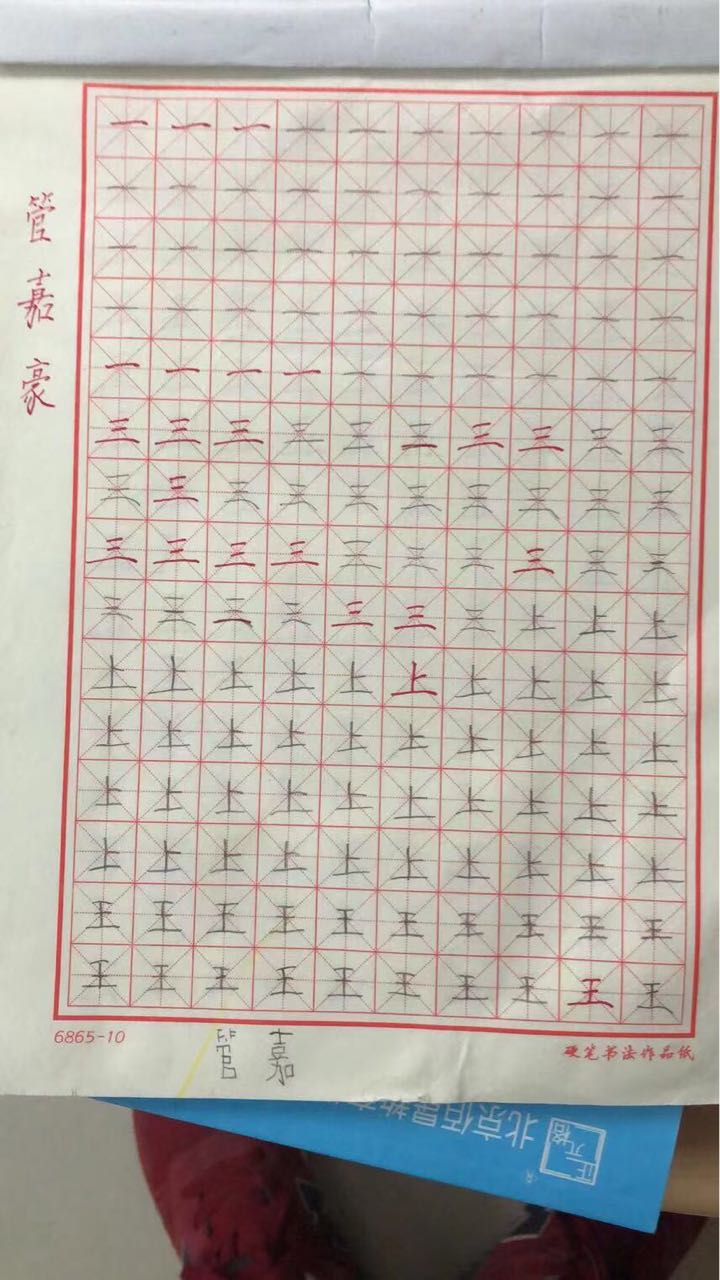 管嘉豪
一一一一一一一一一一
一一一一一一一一一一
一一一一一一一一一一
一一一一一一一一一一
一一一一一一一一一一
三三三三三三三三三三
三三三三三三三三三三
三三三三三三三三三三
三三三三三三三上上上
上上上上上上上上上上
上上上上上上上上上上
上上上上上上上上上上
上上上上上上上上上上
王王王王王王王王王王
王王王王王王王王王王
6865-10
硬笔书法作品纸
管嘉
北京佰